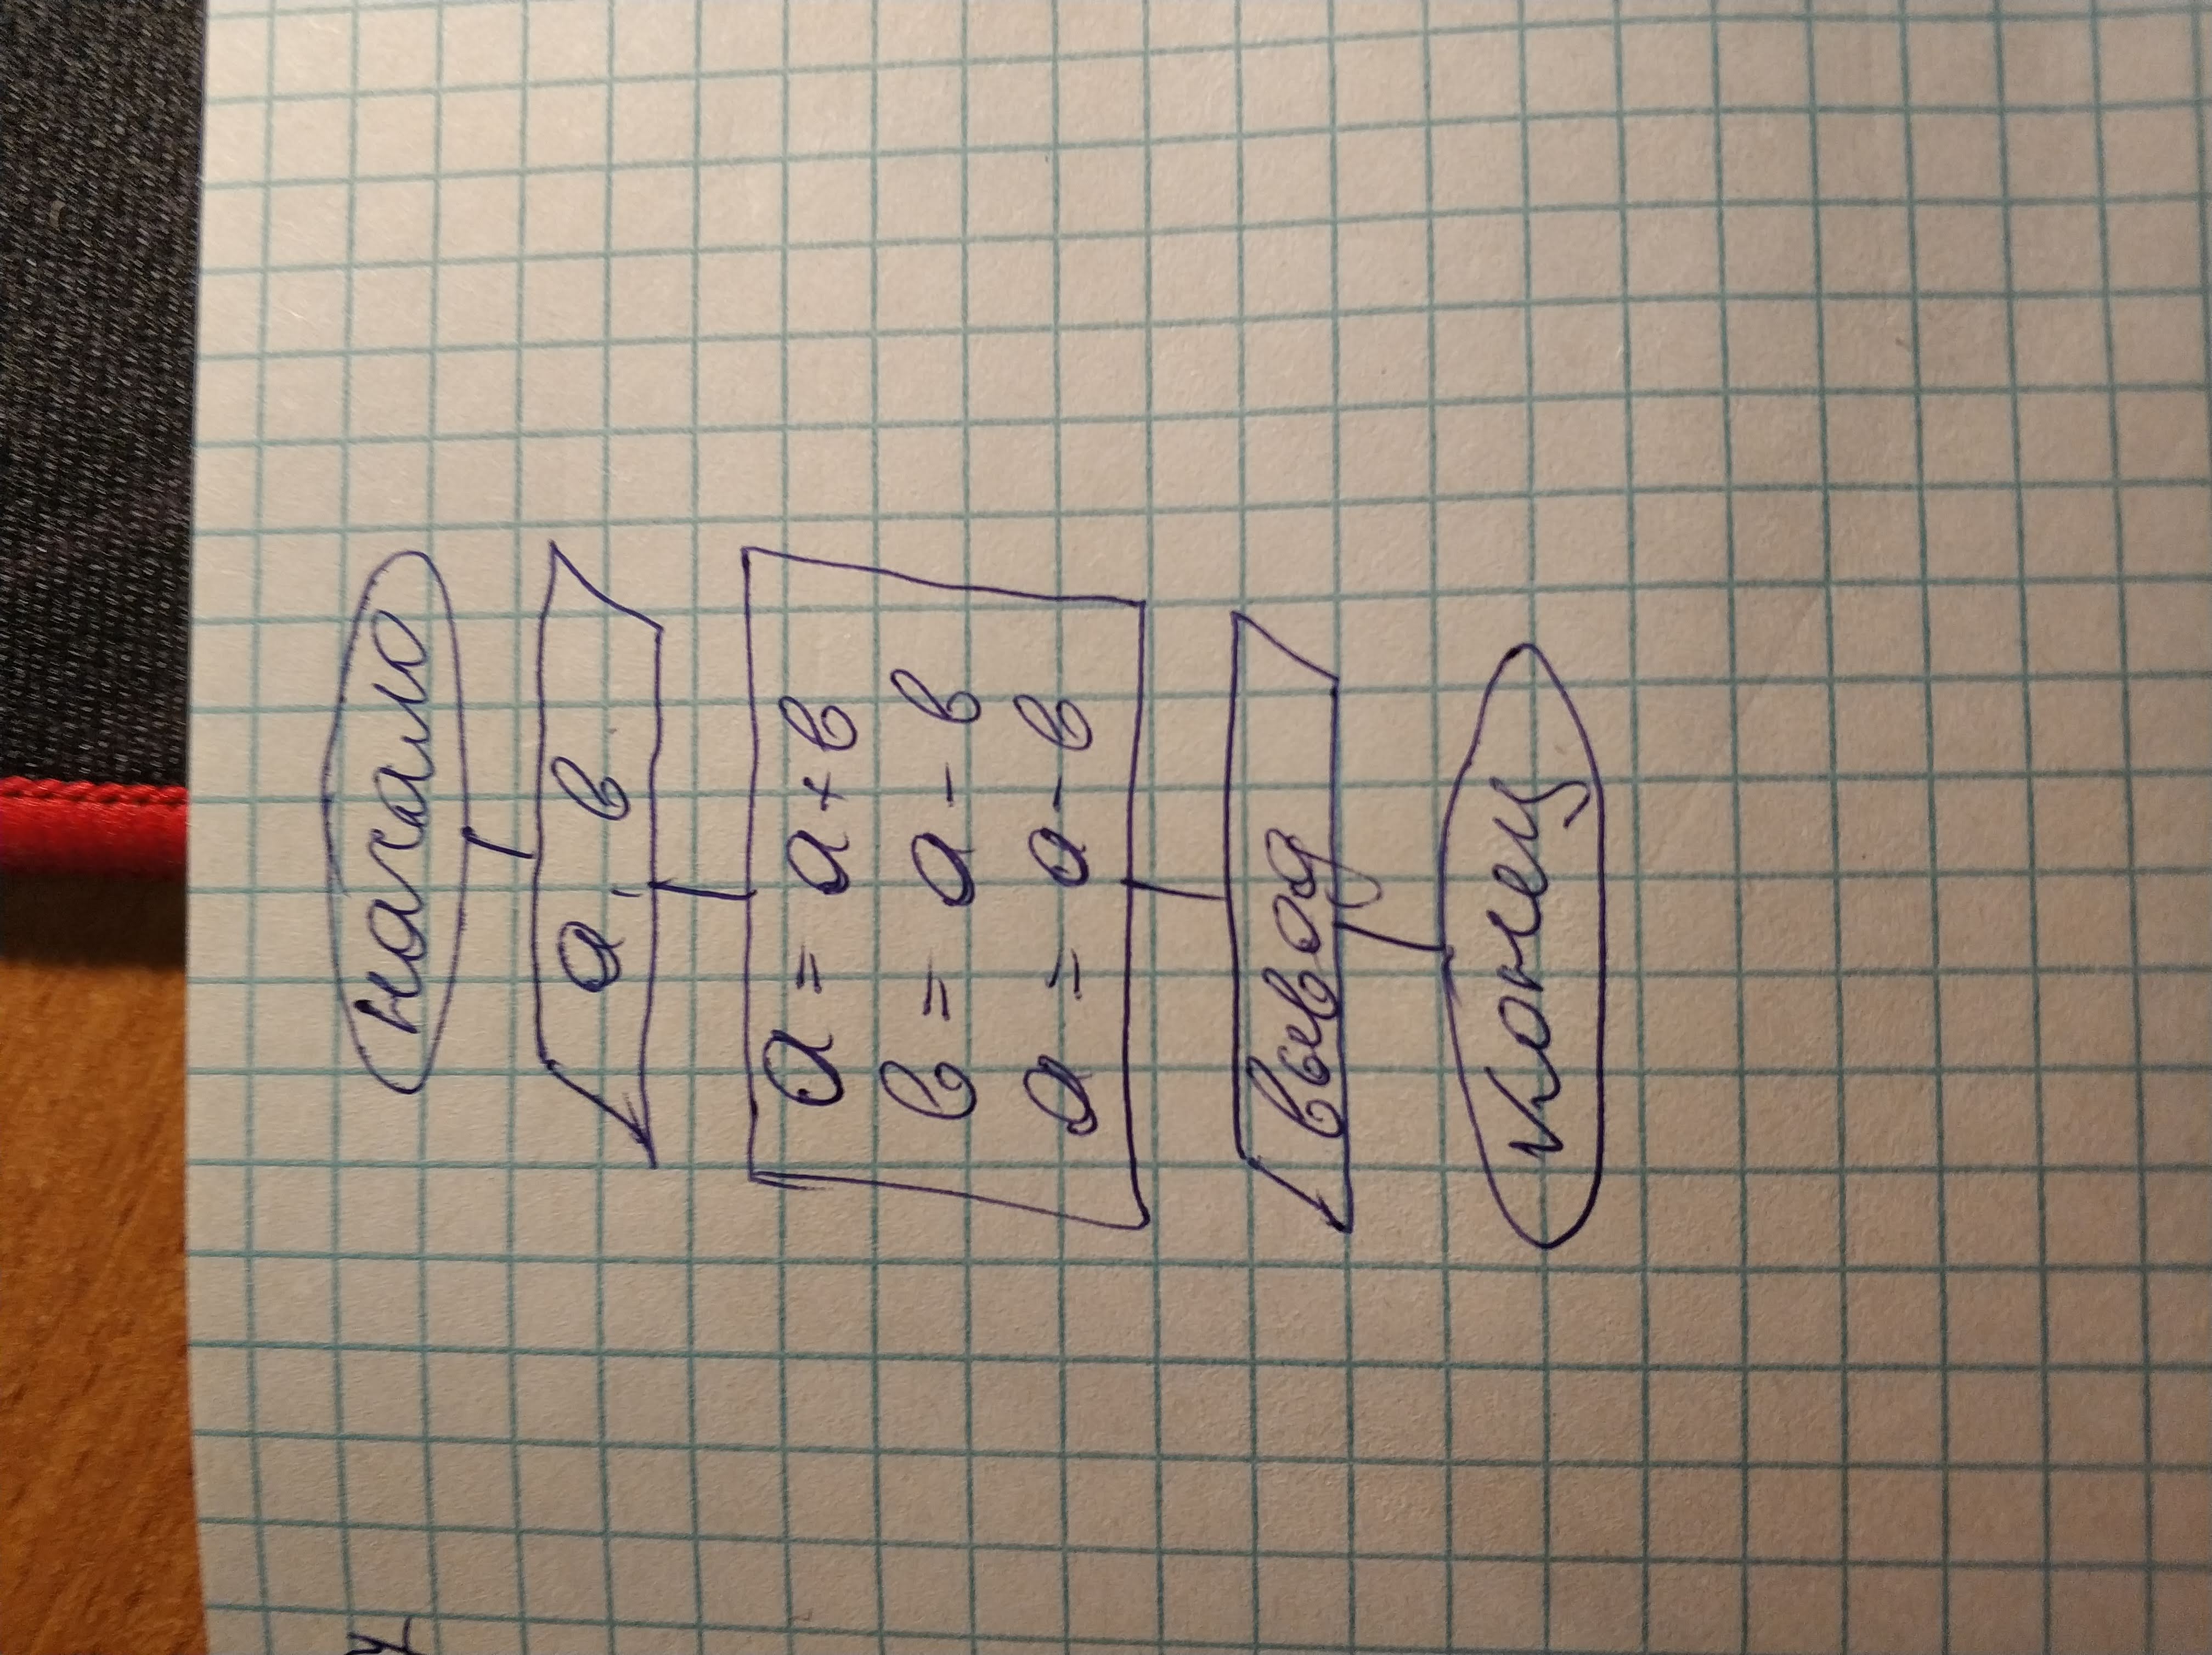 начало
а, в
а = а + в
в = а - в
а = а - в
вывод
конец